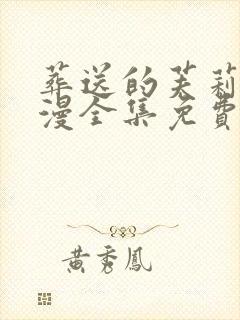 葬送的芙莉
漫全集免費
黃秀鳳